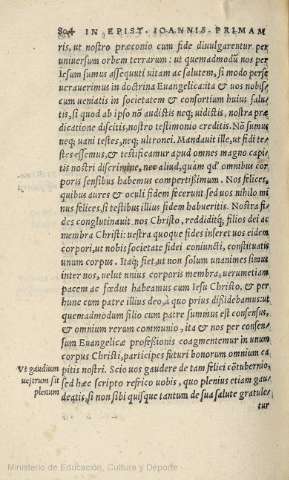 804 IN EPIST. IOANNIS. PRIMAM
ris, ut nostro præconio cum fide diuulgarentur per
uniuersum orbem terrarum: ut quemadmodū nos per
Iesum sumus assequuti uitam ac salutem, si modo perse
uerauerimus in doctrina Euangelica: ita & uos nobis
cum ueniatis in societatem & consortium huius salu
tis, si quod ab ipso nō audistis neq; uidistis, nostra præ
dicatione discitis, nostro testimonio creditis. Nō sumus
neq; uani testes, neq; ultronei. Mandauit ille, ut fidi te=
stes essemus, & testificamur apud omnes magno capi
tis nostri discrimine, nec aliud, quàm qd' omnibus cor
poris sensibus habemus compertissimum. Nos felices,
quibus aures & oculi fidem fecerunt: sed uos nihilo mi
nus felices, si testibus illius fidem habueritis. Nostra fi=
des conglutinauit nos Christo, reddiditq; filios dei ac
membra Christi: uestra quoque fides inseret uos eidem
corpori, ut nobis societate fidei coniuncti, constituatis
unum corpus. Itaq; fiet, ut non solum unanimes simus
inter nos, uelut unius corporis membra, uerumetiam
pacem ac fœdus habeamus cum Iesu Christo, & per
hunc cum patre illius deo, à quo prius dißidebamus: ut
quemadmodum filio cum patre summus est consensus,
& omnium rerum communio, ita & nos per consen=
sum Euangelicæ profeßionis coagmentemur in unum
corpus Christi, participes futuri bonorum omnium ca
pitis nostri. Scio uos gaudere de tam felici cōtubernio,
sed hæc scripto refrico uobis, quo plenius etiam gau=
deatis, si non sibi quisque tantum de sua salute gratule=
tur
Vt gaudium
uestrum sit
plenum
Ministerio de Educación, Cultura y Deporte